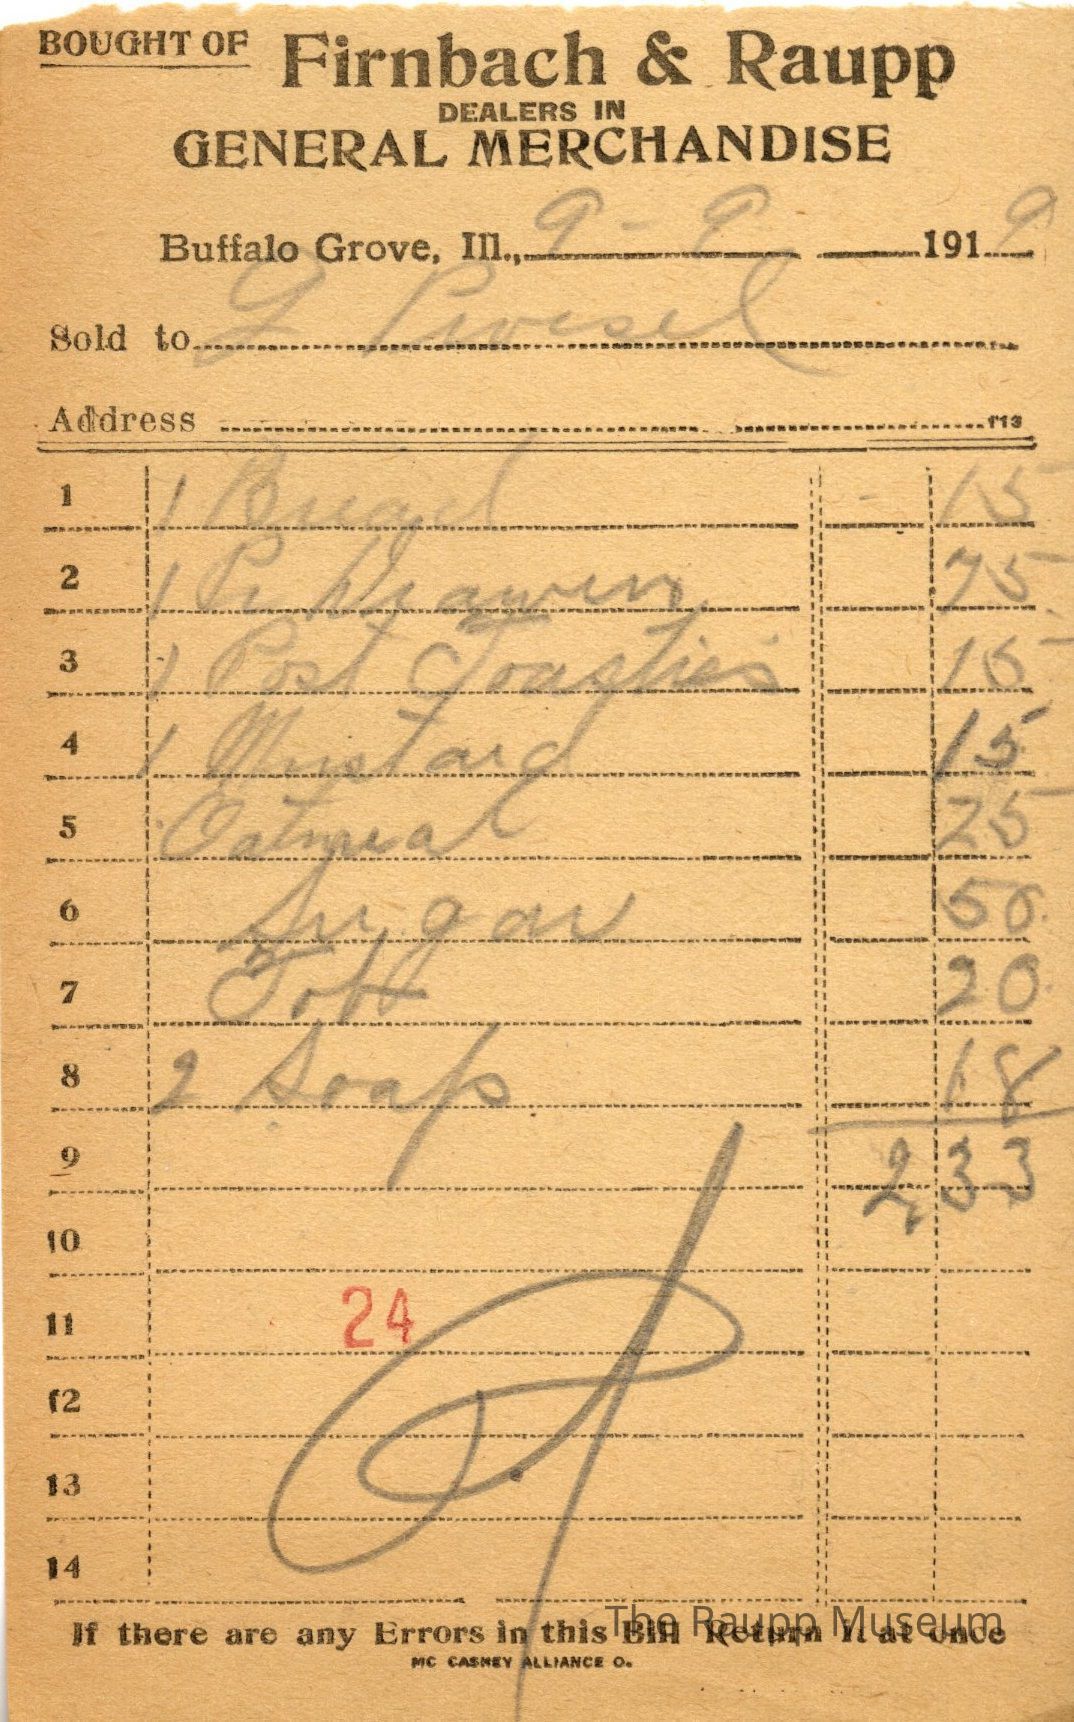 BOUGHT OF Firnbach & Raupp
DEALERS IN
GENERAL MERCHANDISE
Buffalo Grove, Ill., 9 - 9 1919
Sold to
Address F13
1 1 Bread 15
2 1 Pr 75
3 1 Post Toasties 15
4 1 Mustard 15
5 Oatmeal 25
6 Sugar 50
7 Tob 20
8 2 Soap 18
9 2 33
10
11 24
12
13
14
If there are any Errors in this Bill Return it at once
The Raupp Museum
MC CASKEY ALLIANCE O.